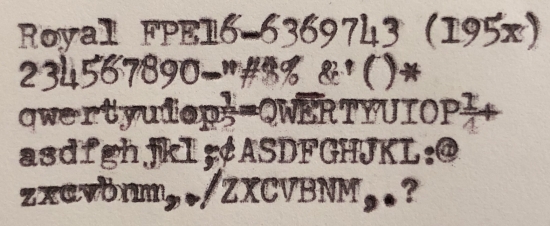 Royal FPE16-6369743 (195x)
234567890-"#$% &'()*
qwertyuiop½=QWERTYUIOP¼+
asdfghjkl;¢ASDFGHJKL:@
zxcvbnm,./ZXCVBNM,.?